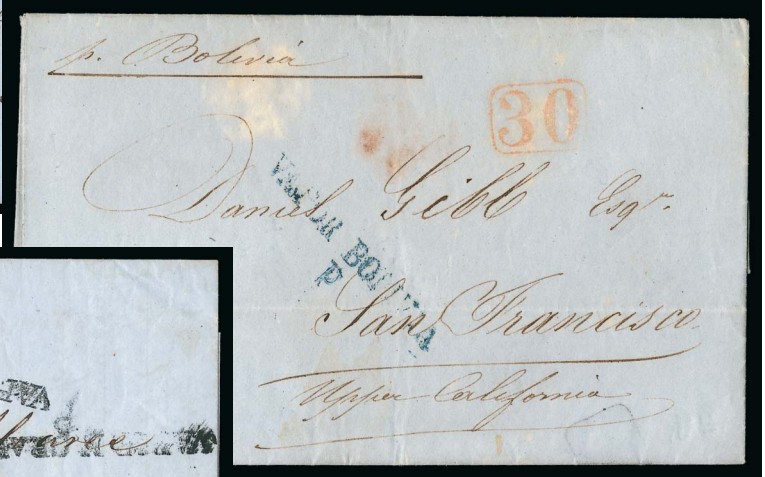 p. Bolivia
30
Daniel Gibb Esqr.
VAPOR BOLIVIA
P
San Francisco
Upper California